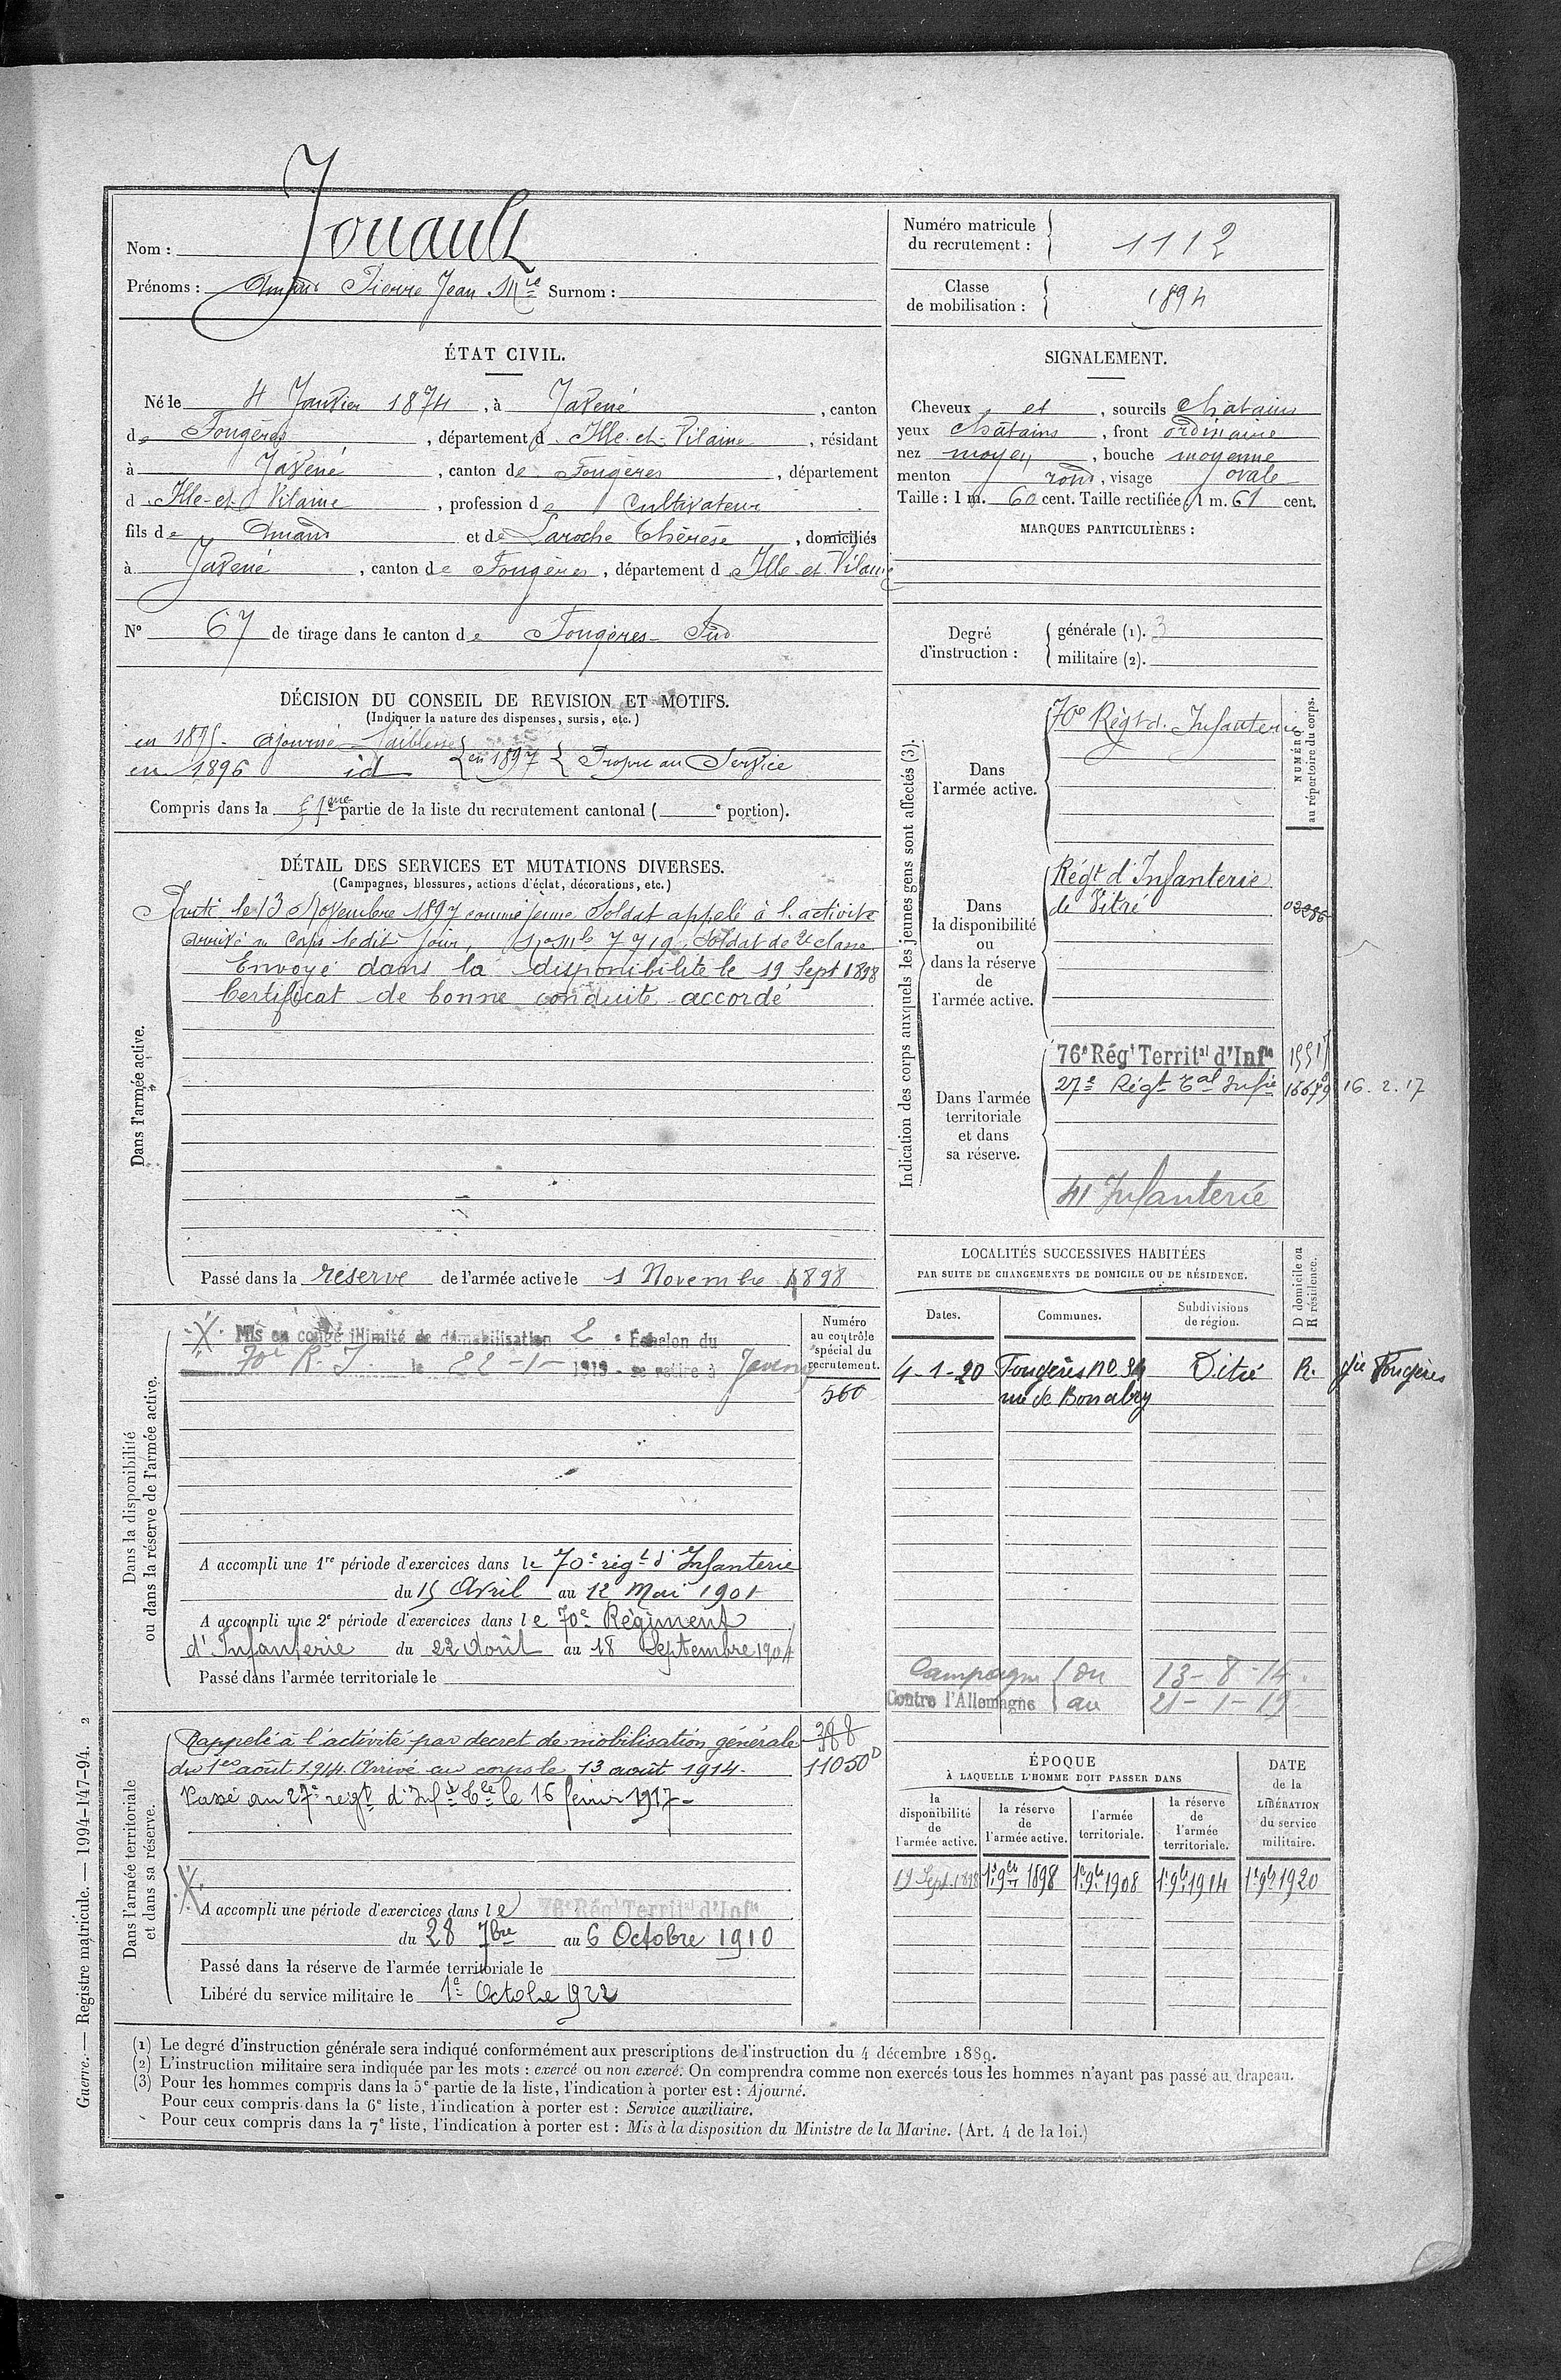 Nom : Jouault
Prénoms : Amand Pierre Jean Mie Surnom :
Numéro matricule du recrutement : 1112
Classe de mobilisation : 1894
ÉTAT CIVIL.
Né le 4 Janvier 1874, à Javené, canton
de Fougères, département d'Ille-et-Vilaine, résidant
à Javené, canton de Fougères, département
d'Ille-et-Vilaine, profession de Cultivateur
fils de Amand et de Laroche Thérèse, domiciliés
à Javené, canton de Fougères, département d Ille-et-Vilaine
N° 67 de tirage dans le canton de Fougères-Sud
SIGNALEMENT.
Cheveux et, sourcils châtains
yeux châtains, front ordinaire
nez moyen, bouche moyenne
menton rond, visage ovale
Taille : 1 m. 60 cent. Taille rectifiée, 1 m. 61 cent.
MARQUES PARTICULIÈRES :
Degré d'instruction :
générale (1). 3
militaire (2).
DÉCISION DU CONSEIL DE REVISION ET MOTIFS.
(Indiquer la nature des dispenses, sursis, etc.)
en 1895 - ajourné faiblesse
en 1896 id
en 1897 Propre au Service
Compris dans la partie de la liste du recrutement cantonal ( e portion).
DÉTAIL DES SERVICES ET MUTATIONS DIVERSES.
(Campagnes, blessures, actions d'éclat, décorations, etc.)
Dans l'armée active.
Parti le 13 Novembre 1897 comme jeune Soldat appelé à l'activité
arrivé au Corps ledit jour, No Mle 7719 Soldat de 2e classe.
Envoyé dans la disponibilité le 19 Sept 1898
Certificat de bonne conduite accordé
Passé dans la réserve de l'armée active le 1 Novembre 1898
Indication des corps auxquels les jeunes gens sont affectés (3).
NUMÉRO au répertoire du corps.
Dans l'armée active.
70e Régt d'Infanterie
Dans la disponibilité ou dans la réserve de l'armée active.
Régt d'Infanterie
de Vitré
Dans l'armée territoriale et dans sa réserve.
76e Régt Territal d'Infie
27e Régt Tal Infie 16679 16.2.17
41 Infanterie
Dans la disponibilité ou dans la réserve de l'armée active.
Numéro au contrôle spécial du recrutement.
560
Mis en congé illimité de démobilisation 2 e Échelon du
70e R.I. le 22-1-1919 - se retire à Javené
A accompli une 1re période d'exercices dans le 70e régt d'Infanterie
du 15 Avril au 12 Mai 1901
A accompli une 2e période d'exercices dans le 70e Régiment
d'Infanterie du 22 Août au 18 Septembre 1904
Passé dans l'armée territoriale le
LOCALITÉS SUCCESSIVES HABITÉES
PAR SUITE DE CHANGEMENTS DE DOMICILE OU DE RÉSIDENCE.
Dates. Communes. Subdivisions de région. D domicile ou R résidence.
4-1-20 Fougères no 34 Vitré R. gie Fougères
rue de Bonabry
Campagne du 13-8-14
Contre l'Allemagne au 21-1-19
Dans l'armée territoriale et dans sa réserve.
Rappelé à l'activité par décret de mobilisation générale 388
du 1er août 1914. Arrivé au corps le 13 août 1914. 11050D
Passé au 27e régt d'Infie Tle le 16 février 1917-
A accompli une période d'exercices dans le 76e Régt Territal d'Infie
du 28 7bre au 6 Octobre 1910
Passé dans la réserve de l'armée territoriale le
Libéré du service militaire le 1e Octobre 1922
ÉPOQUE
À LAQUELLE L'HOMME DOIT PASSER DANS
la disponibilité de l'armée active. la réserve de l'armée active. l'armée territoriale. la réserve de l'armée territoriale. DATE de la LIBÉRATION du service militaire.
19 Sept. 1898 1er 9bre 1898 1er 9bre 1908 1er 9bre 1914 1er 9bre 1920
(1) Le degré d'instruction générale sera indiqué conformément aux prescriptions de l'instruction du 4 décembre 1889.
(2) L'instruction militaire sera indiquée par les mots : exercé ou non exercé. On comprendra comme non exercés tous les hommes n'ayant pas passé au drapeau.
(3) Pour les hommes compris dans la 5e partie de la liste, l'indication à porter est : Ajourné.
Pour ceux compris dans la 6e liste, l'indication à porter est : Service auxiliaire.
Pour ceux compris dans la 7e liste, l'indication à porter est : Mis à la disposition du Ministre de la Marine. (Art. 4 de la loi.)
Guerre. — Registre matricule. — 1994-147-94. 2